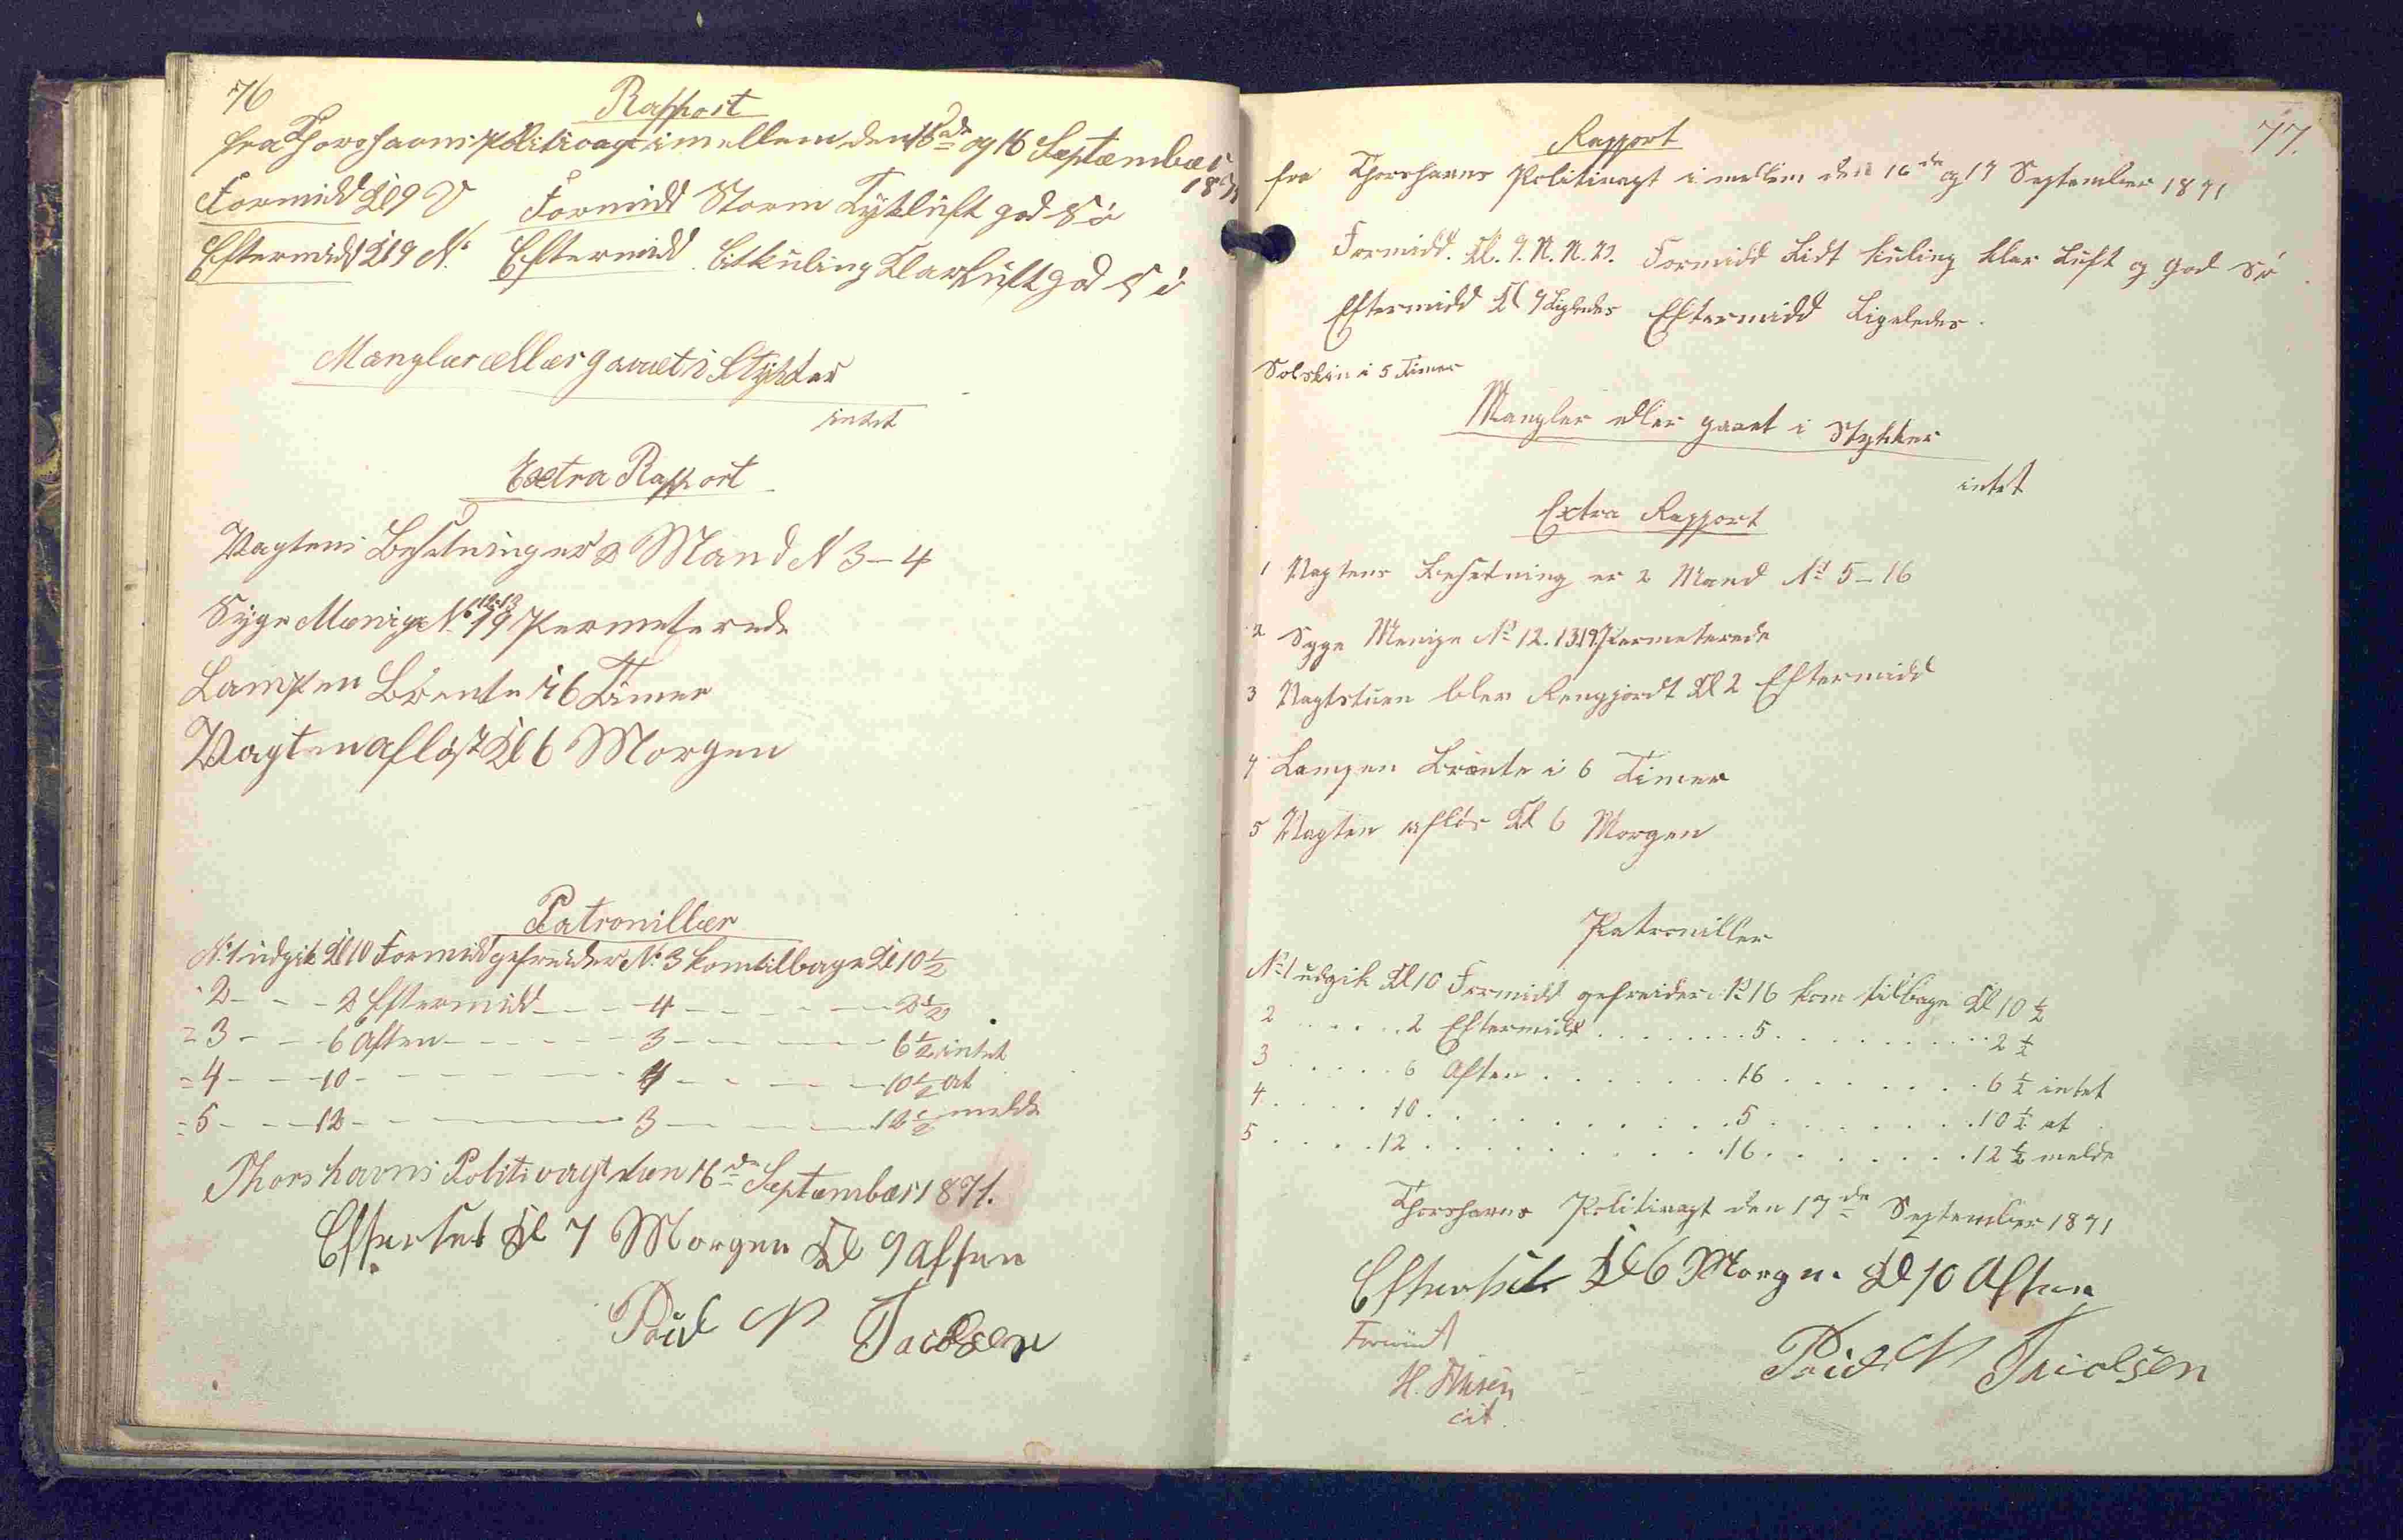 76
Rapport
fra Thorshavns Politivagt imellem den 15de og 16 Septæmber
1871
Formidd Kl 9 V Formidd Storm Tykluft god Sö
Eftermidd Kl 9 N. Eftermidd Litkuling Klarluft god Sö
Manglær ællær gaaet i Stykker
intet
Extra Rapport
Vagtens Besetning er 2 Mand N 3-4
Syge Mænige No 12.13 19 Permeterede
Lampen Brönte i 6 Timer
Vagten aflöst Kl 6 Morgen
Patronillær
No 1 udgik Kl 10 Formidd gefreider No 3 kom tilbage Kl 10 1/2
- 2 - - - 2 Eftermidd - - - 4 - - - - - 2 1/2
= 3 - - - 6 Aften - - - - - 3 - - - - - 6 1/2 intet
= 4 - - - 10 - - - - - - 4 - - - - 10 1/2 at
= 5 - - - 12 - - - - - 3 - - - - 12 1/2 melde
Thorshavns Politivagt den 16de Septæmbær 1871.
Efterset Kl 7 Morgen Kl 9 Aften
Poul N Jacobsen
77.
Rapport
fra Thorshavns Politivagt i mellem den 16de og 17 September 1871
Formidd. Kl. 9. N.N.V. Formidd Lidt Kuling klar Luft og god Sö
Eftermidd Kl 9 Ligeledes Eftermidd Ligeledes.
Solskin i 5 Timer
Mangler eller gaaet i Stykker
intet
Extra Rapport
1 Vagtens Besetning er 2 Mand No 5-16
2 Syge Menige No 12.13 19. Permeterede
3 Vagtstuen blev Rengjordt Kl 2 Eftermidd
4 Lampen Brönte i 6 Timer
5 Vagten aflös Kl 6 Morgen
Patroniller
No 1 udgik Kl 10 Formidd gefreider No 16 kom tilbage Kl 10 1/2
2 . . . . . 2 Eftermidd . . . . . . . 5 . . . . . . . . . 2 1/2
3 . . . . . 6 Aften . . . . . . . 16 . . . . . . . 6 1/2 intet
4 . . . . 10 . . . . . . . . . . 5 . . . . . . . 10 1/2 at
5 . . . . 12 . . . . . . . . . . 16 . . . . . . . 12 1/2 melde
Thorshavns Politivagt den 17de September 1871
Efterset Kl 6 Morgen. Kl 10 Aften
Poul N Jacobsen
H.